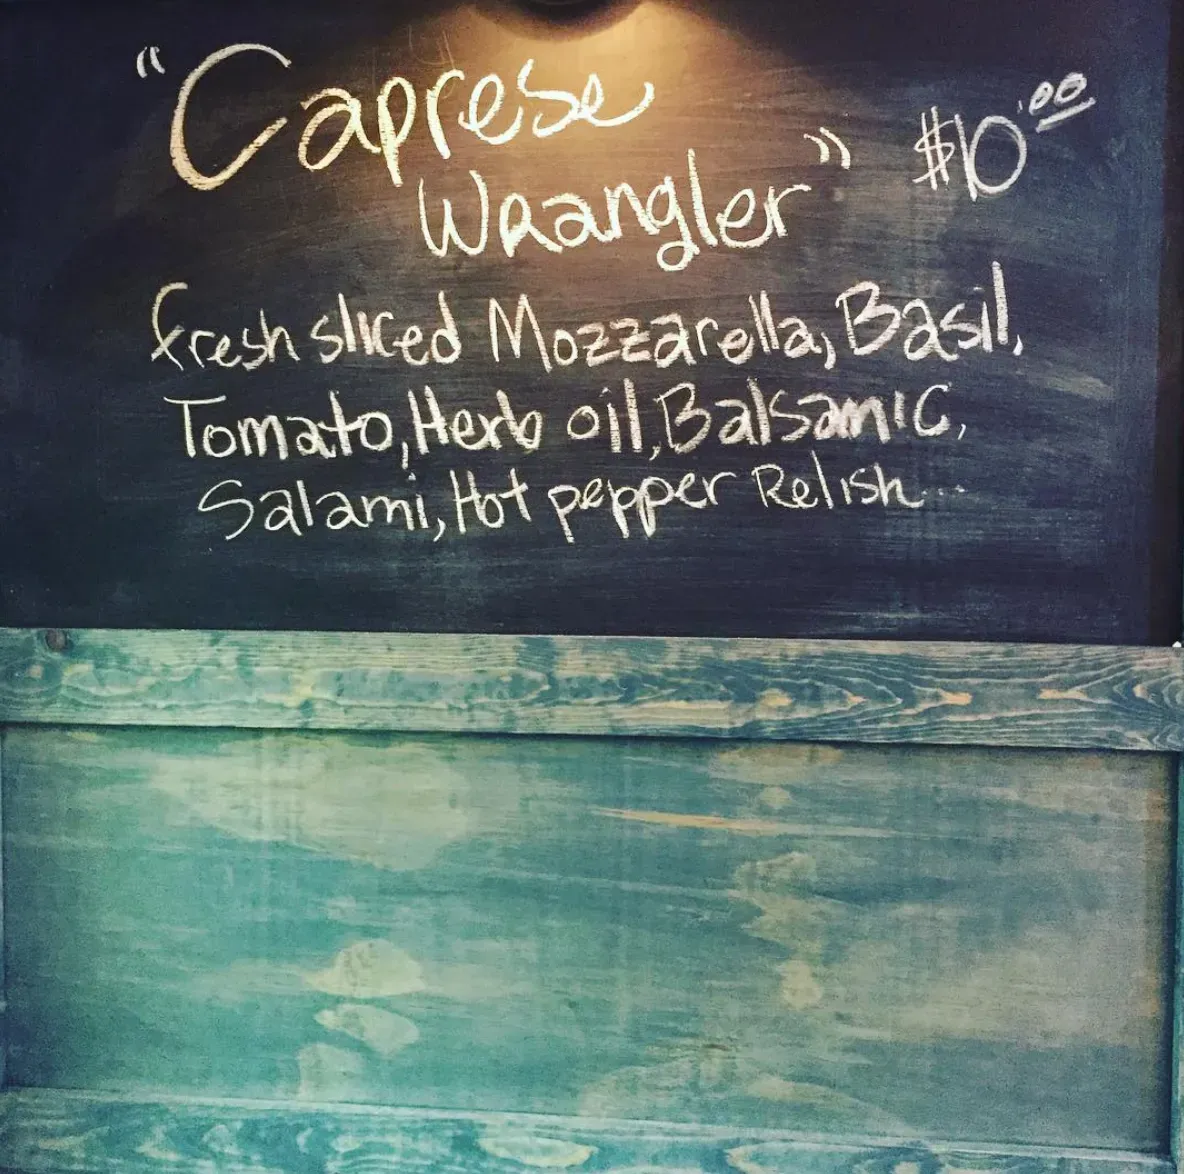 "Caprese
Wrangler" $10.00
fresh sliced Mozzarella, Basil,
Tomato, Herb oil, Balsamic,
Salami, Hot pepper Relish...